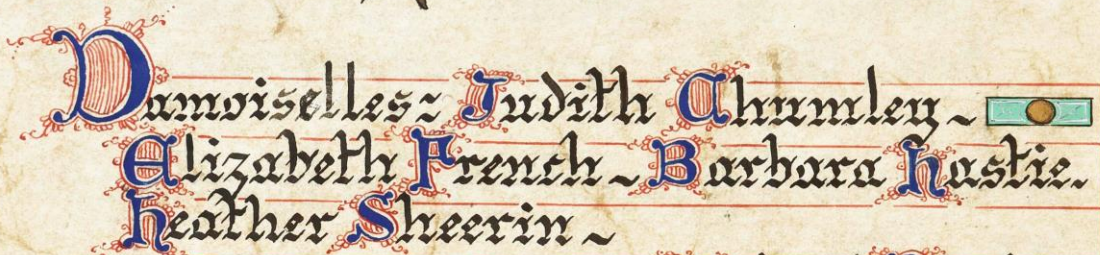 Damoiselles~ Judith Chumley~
Elizabeth French~ Barbara Hastie.
Heather Sheerin~